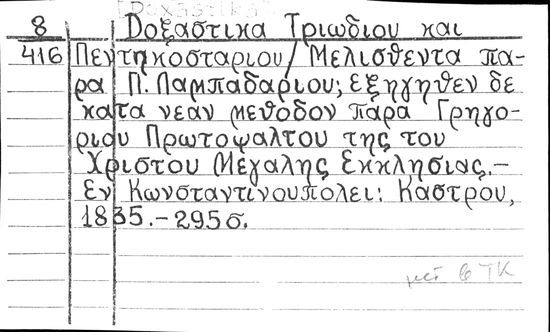 [Doxastika]
8 Δοξαστικα Τριωδιου και
416 Πεντηκοσταριου/Μελισθεντα πα-
ρα Π. Λαμπαδαριου; εξηγηθεν δε
κατα νεαν μεθοδον παρα Γρηγο-
ριου Πρωτοψαλτου της του
Χριστου Μεγαλης Εκκλησιας.–
Εν Κωνσταντινουπολει: Καστρου,
1835.–295σ.